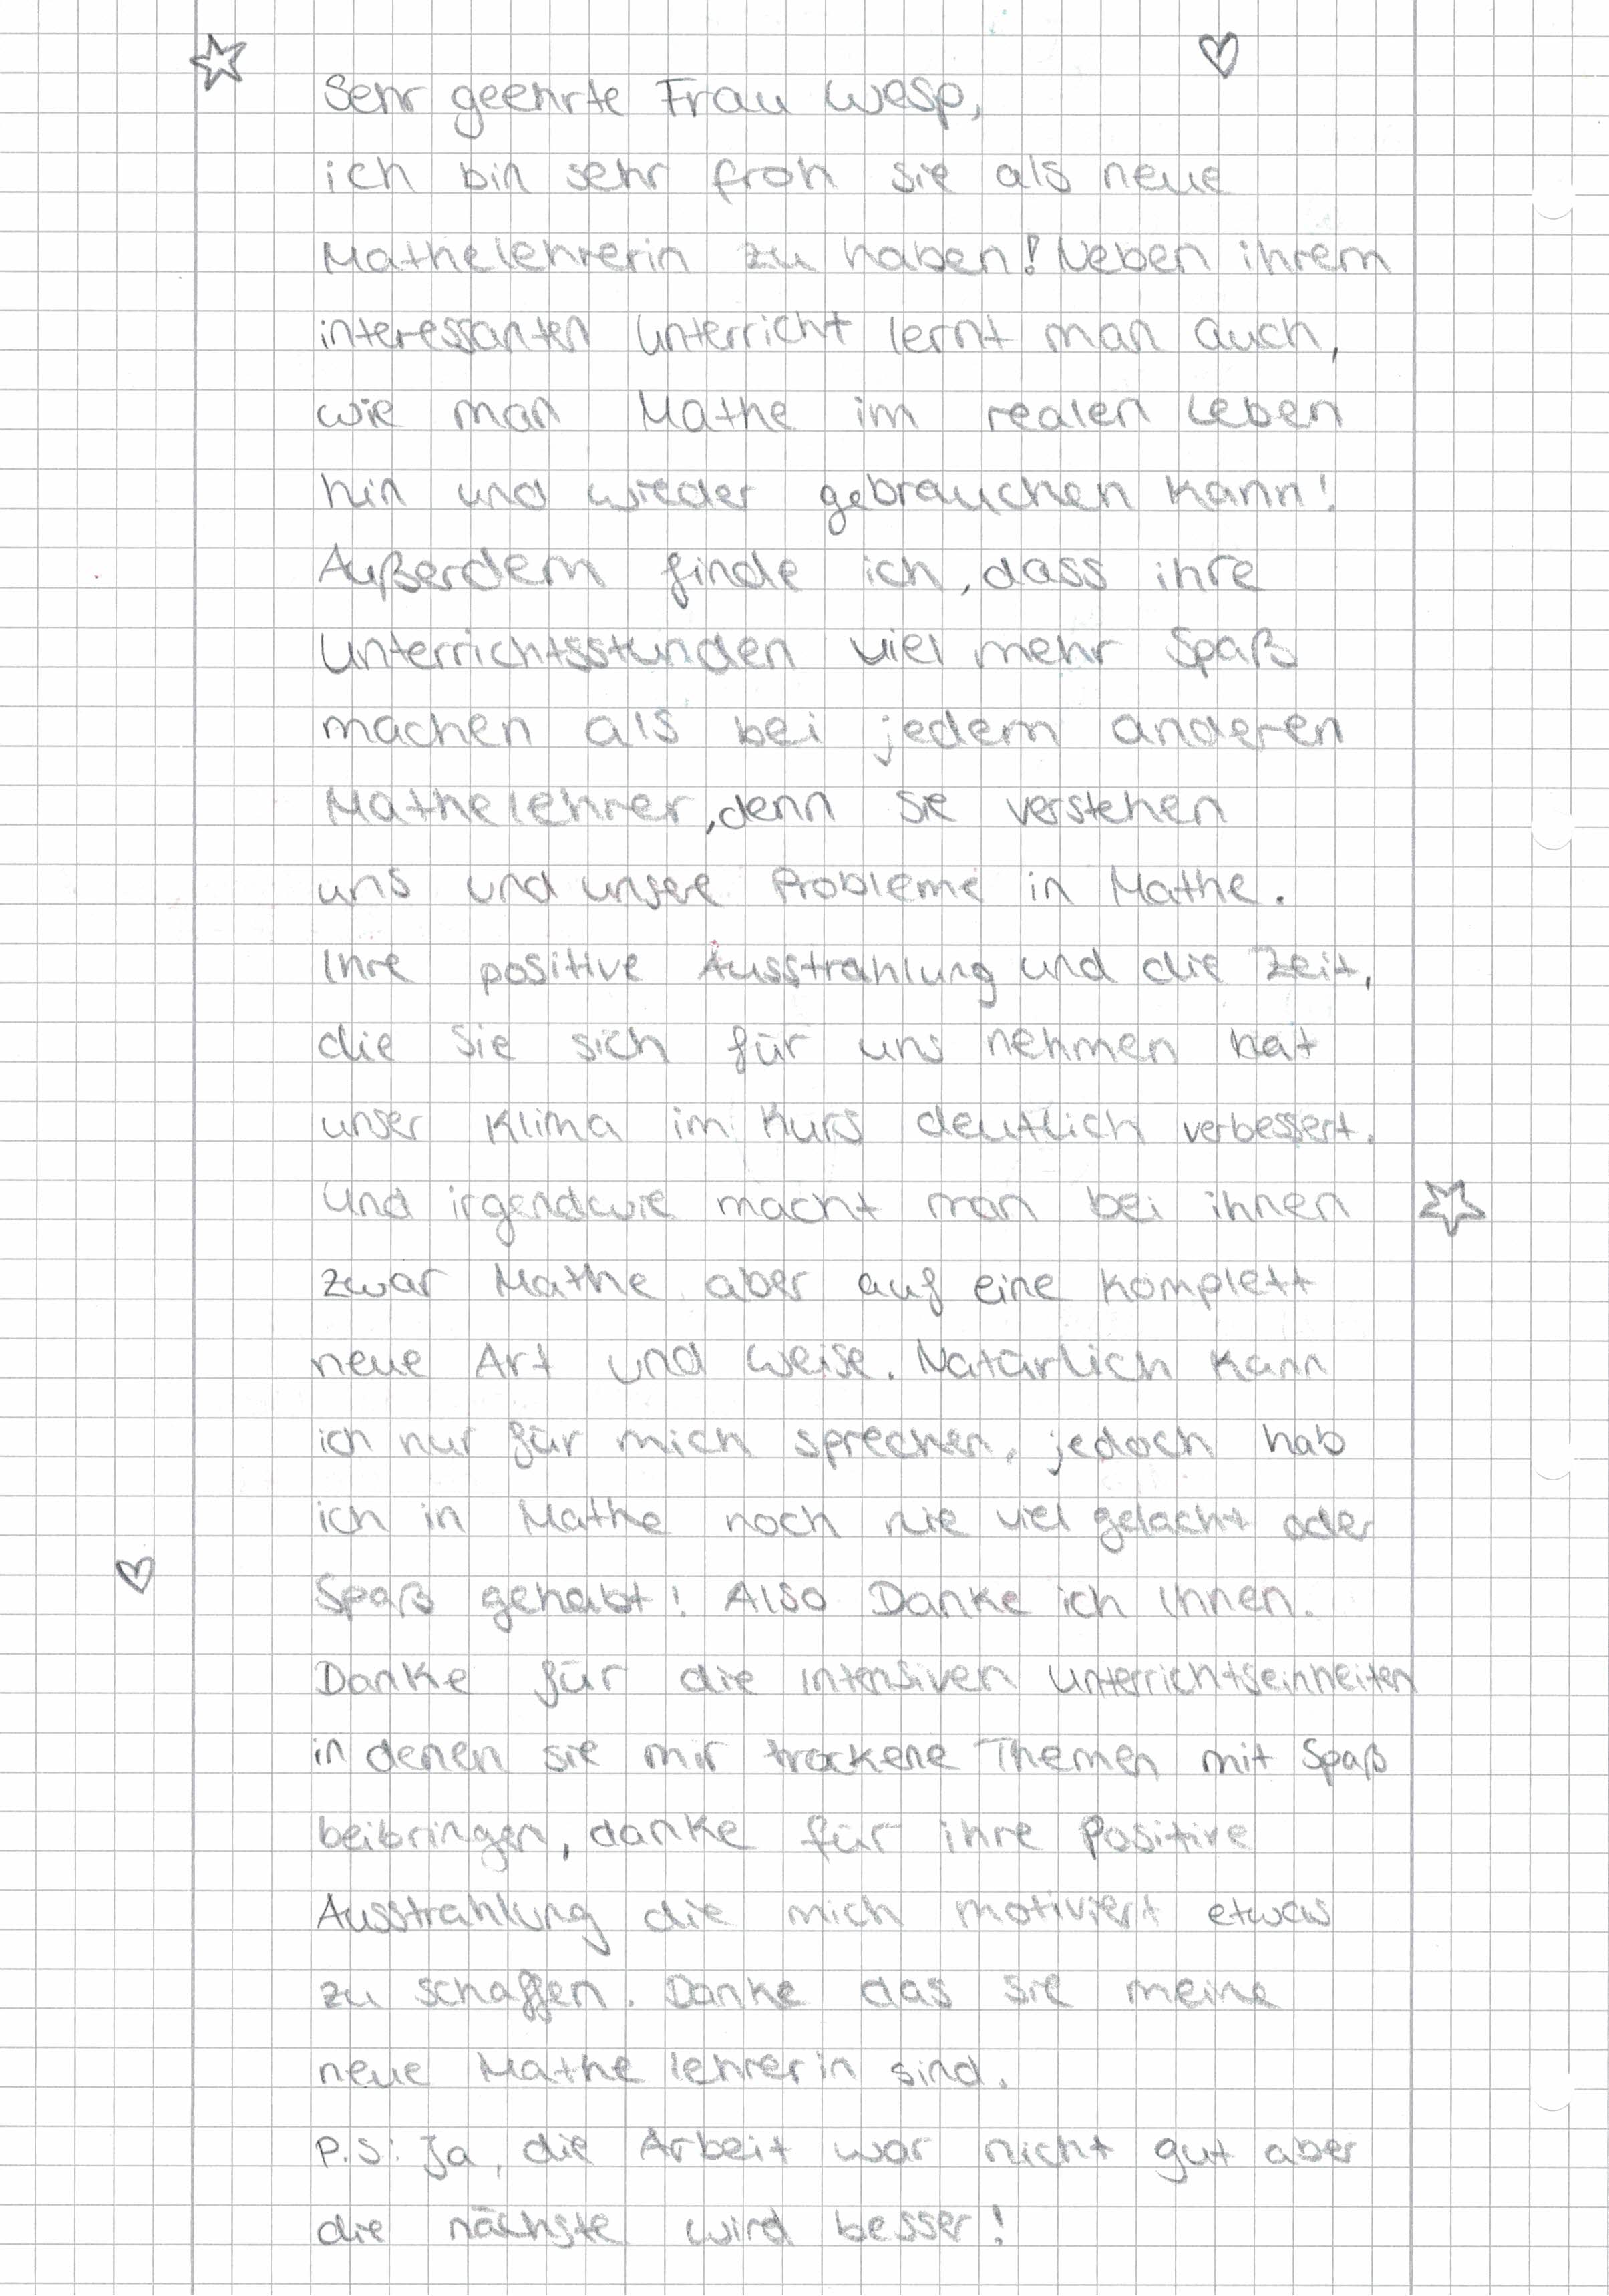 Sehr geehrte Frau Wesp,
ich bin sehr froh sie als neue
Mathelehrerin zu haben! Neben ihrem
interessanten Unterricht lernt man auch,
wie man Mathe im realen Leben
hin und wieder gebrauchen kann!
Außerdem finde ich, dass ihre
Unterrichtsstunden viel mehr Spaß
machen als bei jedem anderen
Mathelehrer, denn sie verstehen
uns und unsere Probleme in Mathe.
Ihre positive Ausstrahlung und die Zeit,
die Sie sich für uns nehmen hat
unser Klima im Kurs deutlich verbessert.
Und irgendwie macht man bei ihnen
zwar Mathe aber auf eine komplett
neue Art und Weise. Natürlich kann
ich nur für mich sprechen, jedoch hab
ich in Mathe noch nie viel gelacht oder
Spaß gehabt! Also Danke ich Ihnen.
Danke für die intensiven Unterrichtseinheiten
in denen sie mir trockene Themen mit Spaß
beibringen, danke für ihre Positive
Ausstrahlung die mich motiviert etwas
zu schaffen. Danke das sie meine
neue Mathe lehrerin sind.
P.S: Ja, die Arbeit war nicht gut aber
die nächste wird besser!